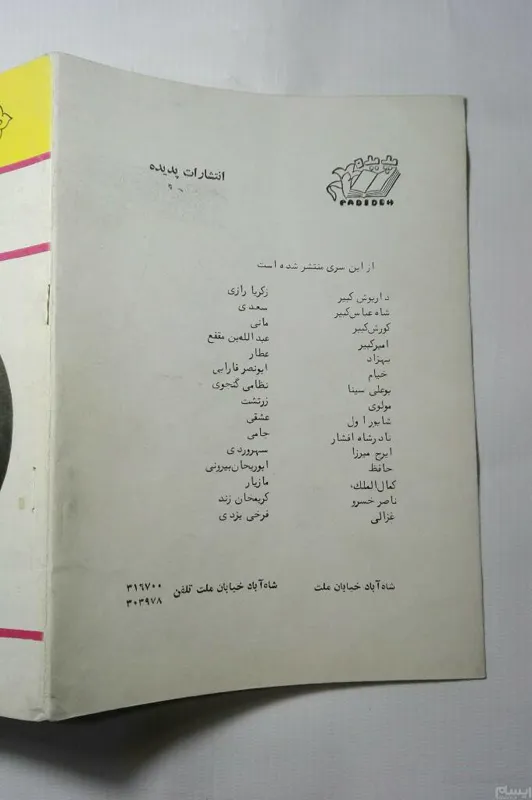 پدیده
PADIDEH
انتشارات پدیده
از این سری منتشر شده است
داریوش کبیر
شاه عباس کبیر
کورش کبیر
امیر کبیر
بهزاد
خیام
بوعلی سینا
مولوی
شاپور اول
نادر شاه افشار
ایرج میرزا
حافظ
کمال الملک
ناصر خسرو
غزالی
زکریا رازی
سعدی
مانی
عبدالله بن مقفع
عطار
ابونصر فارابی
نظامی گنجوی
زرتشت
عشقی
جامی
سهروردی
ابوریحان بیرونی
مازیار
کریمخان زند
فرخی یزدی
شاه آباد خیابان ملت
شاه آباد خیابان ملت تلفن ۳۱۶۷۰۰
۳۰۳۹۷۸
ایسام